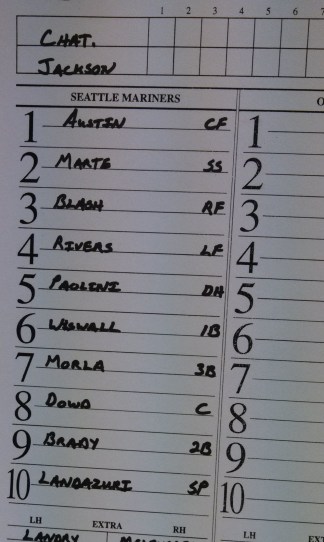 1 2 3 4 5 6 7
CHAT.
JACKSON
SEATTLE MARINERS O
1 AUSTIN CF 1
2 MARTE SS 2
3 BLASH RF 3
4 RIVERS LF 4
5 PAOLINI DH 5
6 WISWALL 1B 6
7 MORLA 3B 7
8 DOWD C 8
9 BRADY 2B 9
10 LANDAZURI SP 10
LH EXTRA RH LH EXT
LANDRY